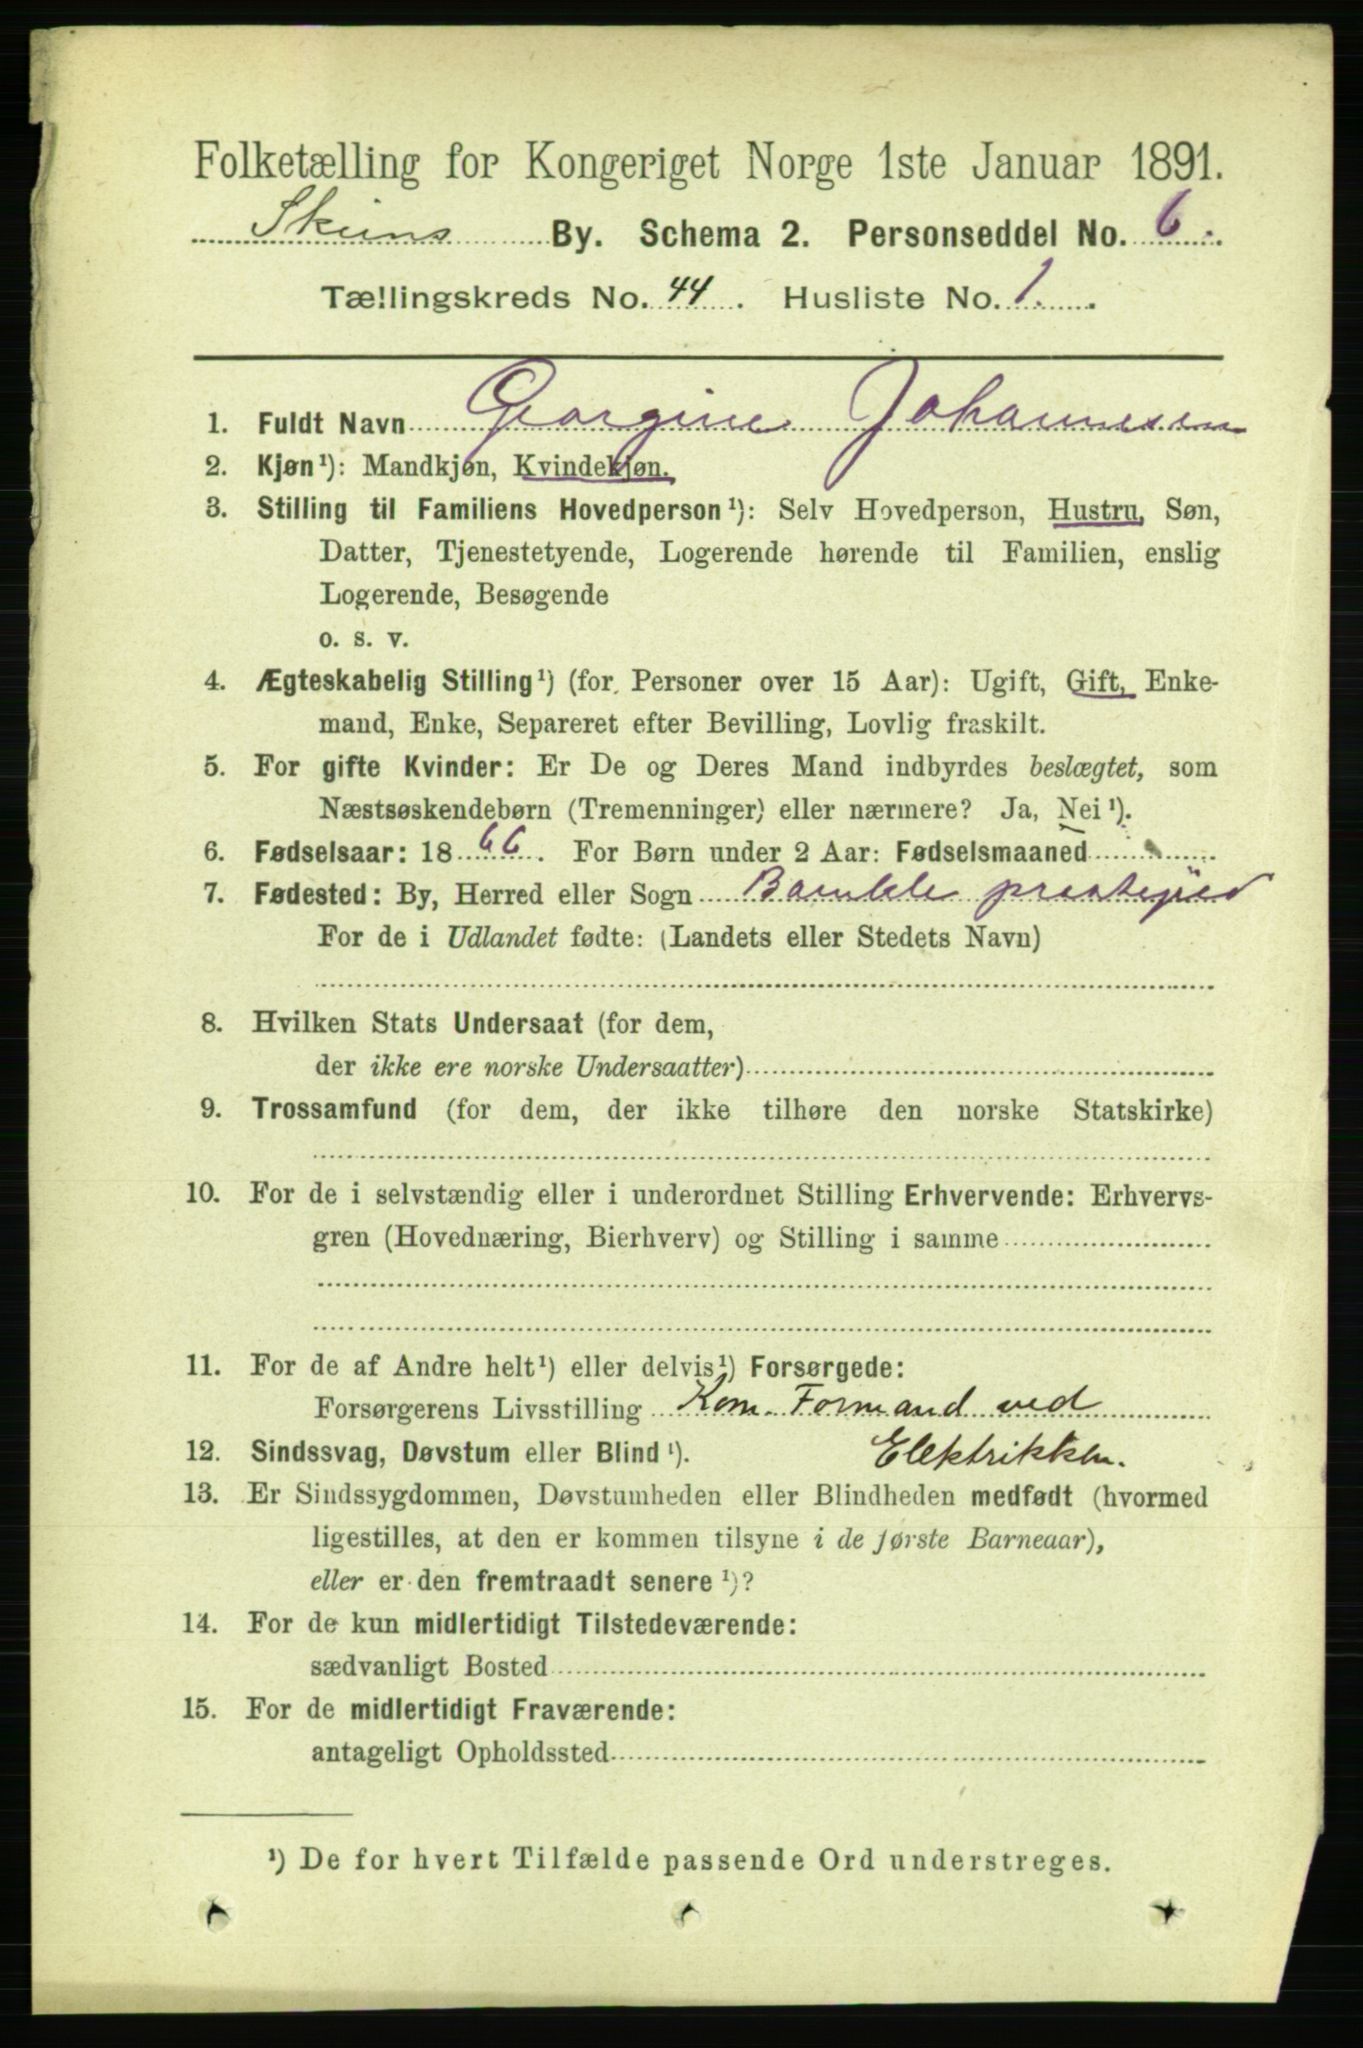 Folketælling for Kongeriget Norge 1ste Januar 1891.
Skiens By. Schema 2. Personseddel No. 6.
Tællingskreds No. 44. Husliste No. 1.
1. Fuldt Navn Georgine Johannesen
2. Kjøn¹): Mandkjøn, Kvindekjøn.
3. Stilling til Familiens Hovedperson¹): Selv Hovedperson, Hustru, Søn,
Datter, Tjenestetyende, Logerende hørende til Familien, enslig
Logerende, Besøgende
o. s. v.
4. Ægteskabelig Stilling¹) (for Personer over 15 Aar): Ugift, Gift, Enke-
mand, Enke, Separeret efter Bevilling, Lovlig fraskilt.
5. For gifte Kvinder: Er De og Deres Mand indbyrdes beslægtet, som
Næstsøskendebørn (Tremenninger) eller nærmere? Ja, Nei¹).
6. Fødselsaar: 1866. For Børn under 2 Aar: Fødselsmaaned
7. Fødested: By, Herred eller Sogn Bamble
For de i Udlandet fødte: (Landets eller Stedets Navn)
8. Hvilken Stats Undersaat (for dem,
der ikke ere norske Undersaatter)
9. Trossamfund (for dem, der ikke tilhøre den norske Statskirke)
10. For de i selvstændig eller i underordnet Stilling Erhvervende: Erhvervs-
gren (Hovednæring, Bierhverv) og Stilling i samme
11. For de af Andre helt¹) eller delvis¹) Forsørgede:
Forsørgerens Livsstilling Kom. Formand ved
12. Sindssvag, Døvstum eller Blind¹). Elektrikken.
13. Er Sindssygdommen, Døvstumheden eller Blindheden medfødt (hvormed
ligestilles, at den er kommen tilsyne i de første Barneaar),
eller er den fremtraadt senere¹)?
14. For de kun midlertidigt Tilstedeværende:
sædvanligt Bosted
15. For de midlertidigt Fraværende:
antageligt Opholdssted
¹) De for hvert Tilfælde passende Ord understreges.